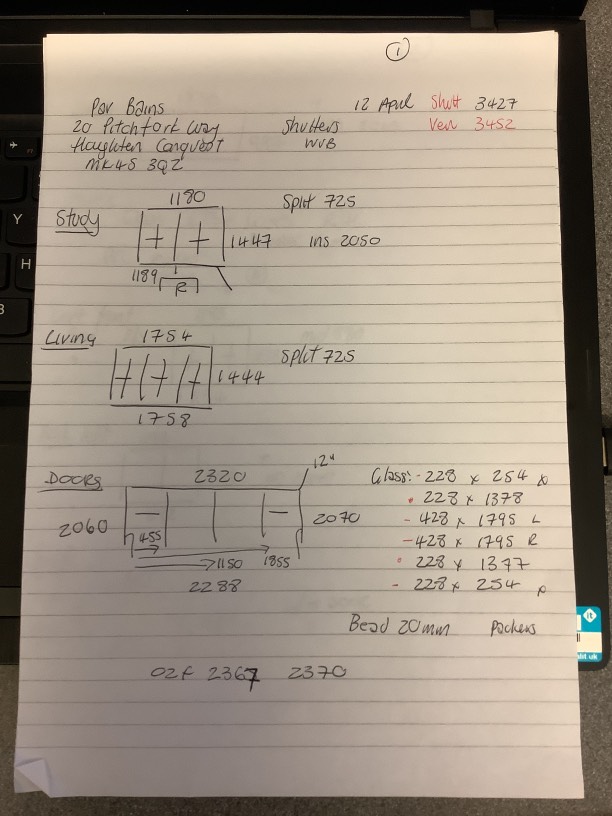 1
Par Bains 12 April Shutt 3427
20 Pitchfork Way Shutters Ven 3452
Haughten Conquest WVB
MK45 3QZ
1180 Split 725
Study 1447 ins 2050
1189 R
Living 1754 Split 725
1444
1758
Doors 2320 12" Glass:- 228 x 254
228 x 1378
2060 2070 - 428 x 1795 L
455 - 428 x 1795 R
1150 1855 228 x 1377
2288 - 228 x 254
Bead 20mm Packers
02f 2367 2370
Y
H
it